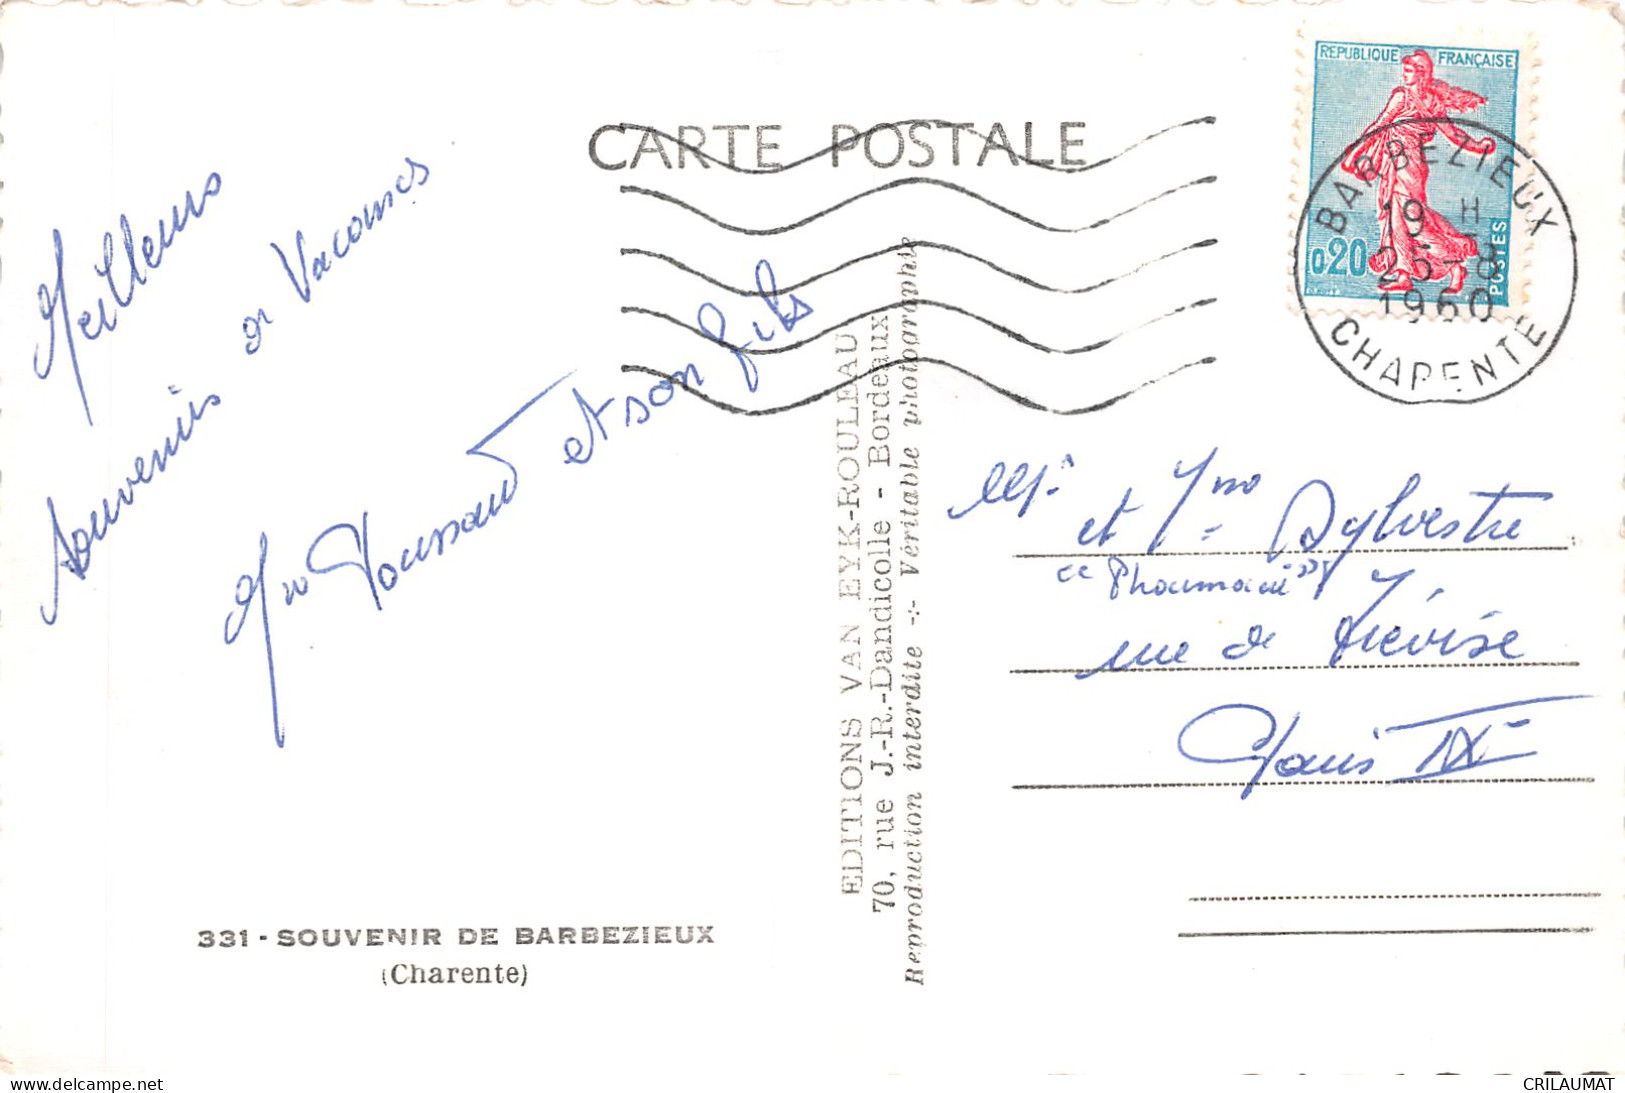 CARTE POSTALE
REPUBLIQUE FRANÇAISE
0,20
POSTES
BARBEZIEUX
19 H
25-8
1960
CHARENTE
Meilleurs
souvenirs de Vacances
Mme Toussaint et son fils
EDITIONS VAN EYK-ROULEAU
70, rue J.-R.-Dandicolle - Bordeaux
Reproduction interdite -:- Véritable photographie
Mr
et Mme Sylvestre
"Pharmacie"
rue de Trévise
Paris IXe
331 - SOUVENIR DE BARBEZIEUX
(Charente)
delcampe.net
CRILAUMAT